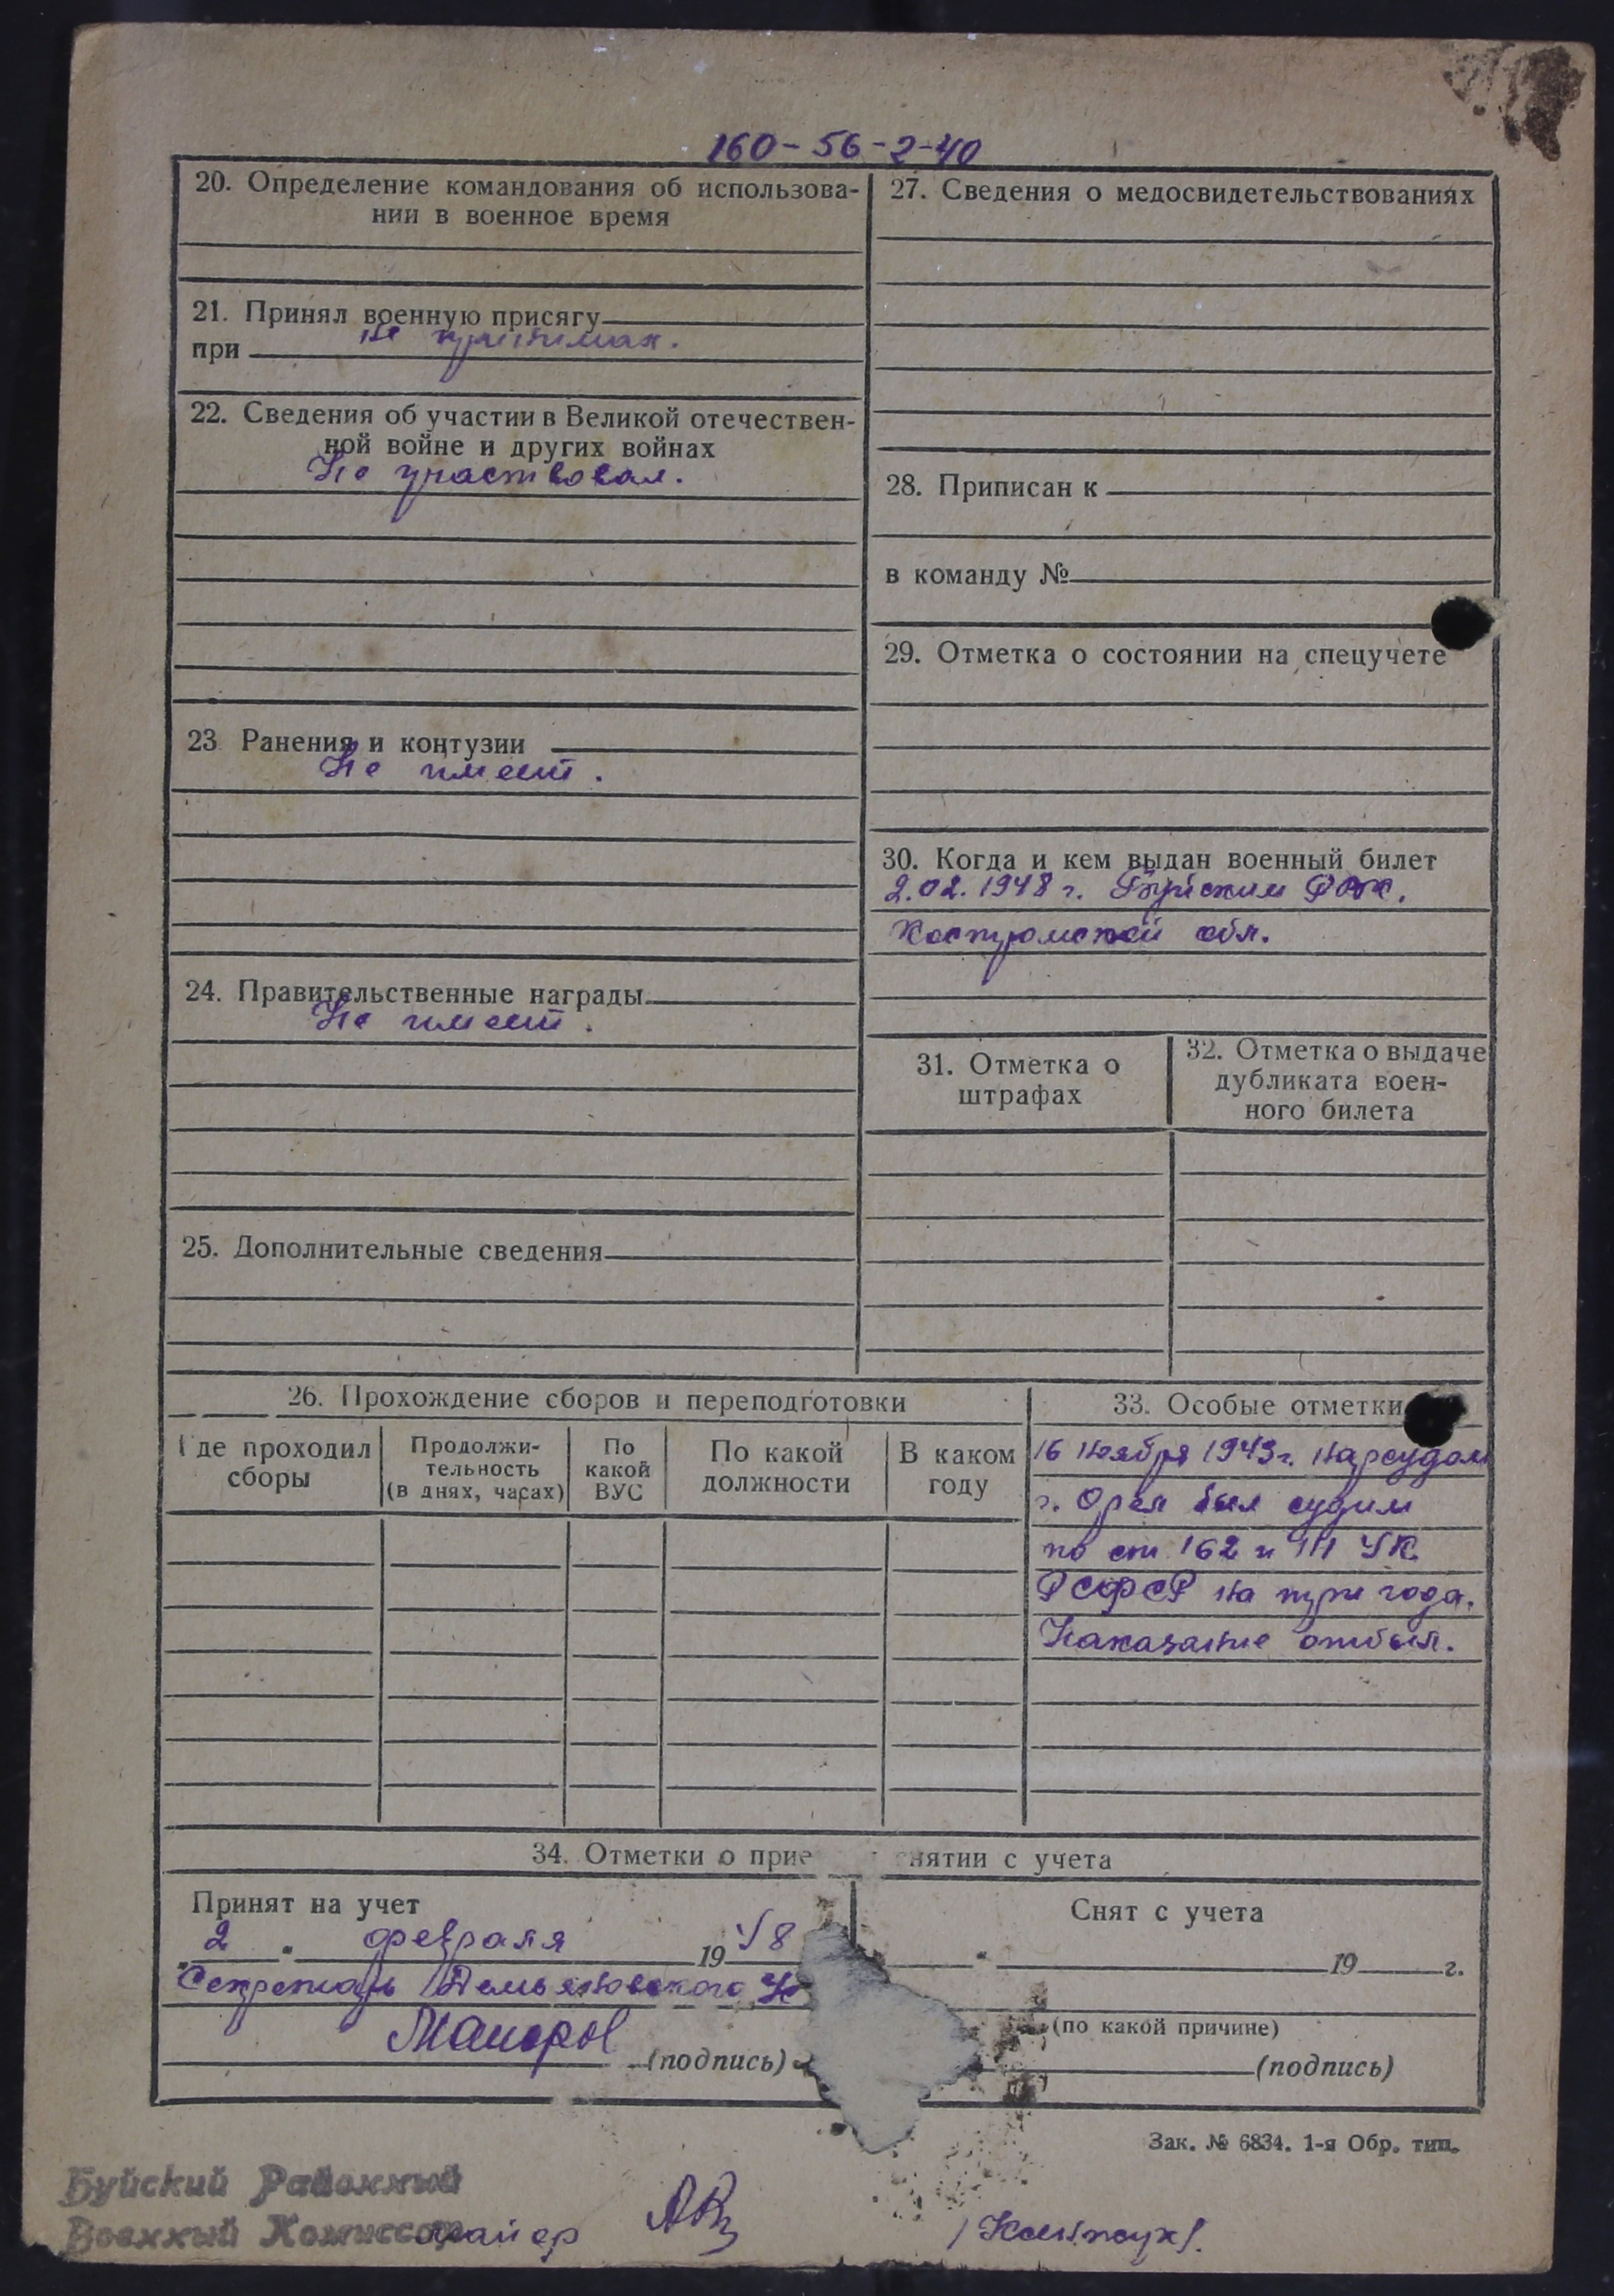 160-56-2-40
20. Определение командования об использова-
нии в военное время
21. Принял военную присягу
не принимал.
при
22. Сведения об участии в Великой отечествен-
ной войне и других войнах
Не участвовал.
23 Ранения и контузии
Не имеет.
24. Правительственные награды
Не имеет.
25. Дополнительные сведения
27. Сведения о медосвидетельствованиях
28. Приписан к
в команду №
29. Отметка о состоянии на спецучете
30. Когда и кем выдан военный билет
2.02.1948 г. Буйским РВК,
Костромской обл.
31. Отметка о
штрафах
32. Отметка о выдаче
дубликата воен-
ного билета
26. Прохождение сборов и переподготовки
Где проходил
сборы
Продолжи-
тельность
(в днях, часах)
По
какой
ВУС
По какой
должности
В каком
году
33. Особые отметки
16 ноября 1943г. нарсудом
г. Орла был судим
по ст. 162 и 111 УК
РСФСР на три года.
Наказание отбыл.
34. Отметки о прие нятии с учета
Принят на учет
2 февраля 1948
Секретарь Демьяновского
(подпись)
Снят с учета
19 г.
(по какой причине)
(подпись)
Зак. № 6834. 1-я Обр. тип.
Буйский Районный
Военный Комиссар
майор